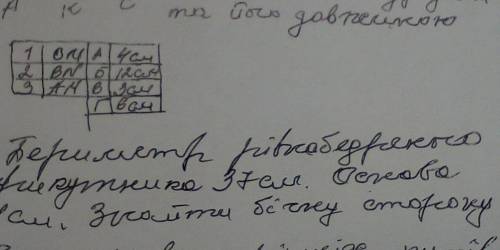 та його довжиною
1 BM А 4см
2 BN Б 12см
3 AN В 3см
Г 6см
Периметр рівнобедреного
трикутника 37см. Основа
см. Знайти бічну сторону